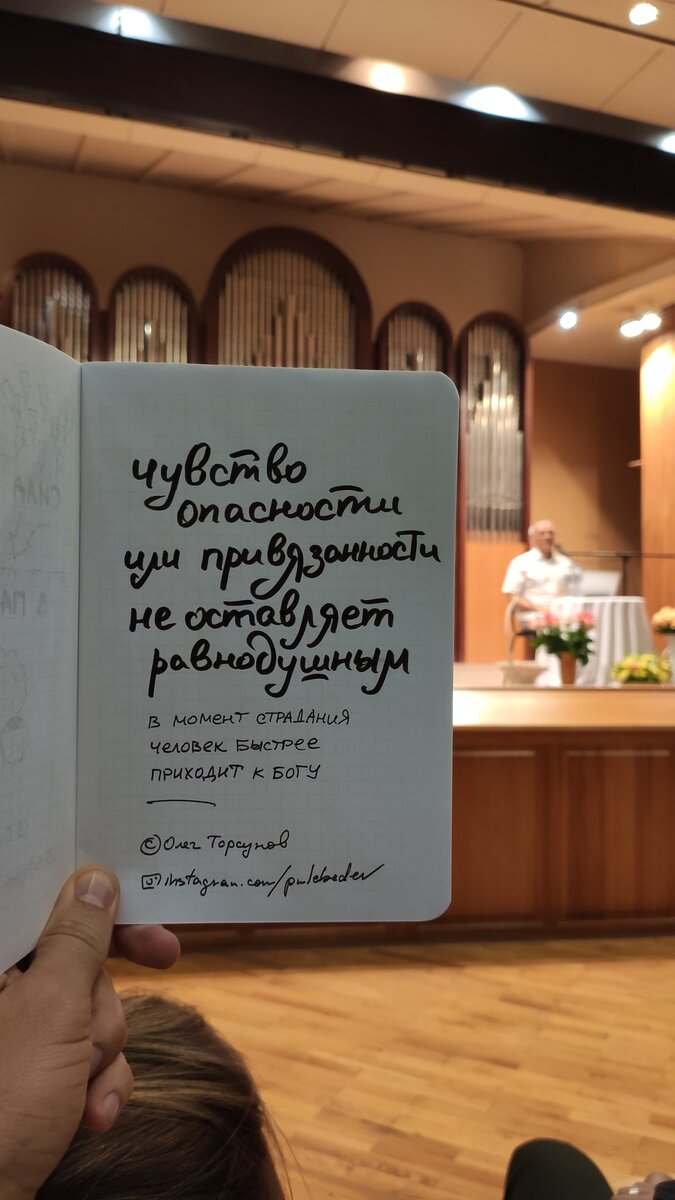 чувство
опасности
или привязанности
не оставляет
равнодушным
В МОМЕНТ СТРАДАНИЯ
ЧЕЛОВЕК БЫСТРЕЕ
ПРИХОДИТ К БОГУ
© Олег Торсунов
instagram.com/pvlebedev
СИЛА